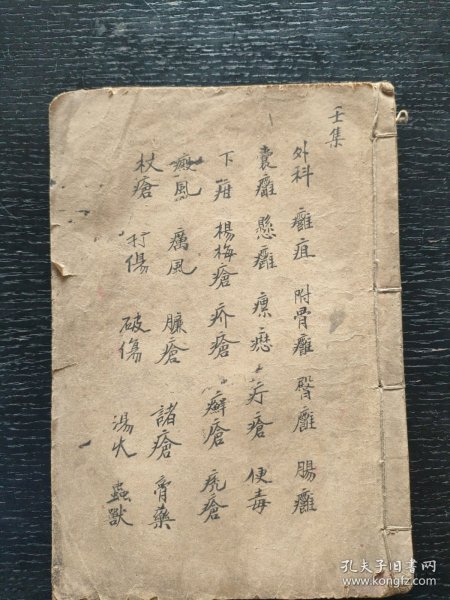 壬集
外科 癰疽 附骨癰 臀癰 腸癰
囊癰 懸癰 瘰癧 疔瘡 便毒
下疳 楊梅瘡 疥瘡 癬瘡 疣瘡
癜風 癘風 臁瘡 諸瘡 膏藥
杖瘡 打傷 破傷 湯火 蟲獸
孔夫子旧书网
www.kongfz.com